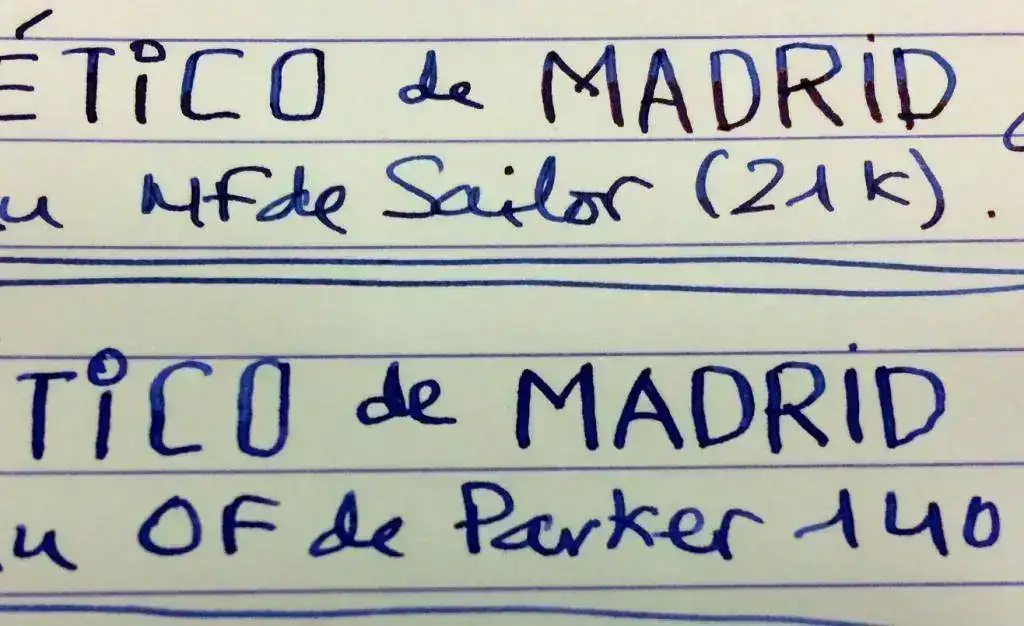 ÉTiCO de MADRiD
u MF de Sailor (21k).
TiCO de MADRiD
u OF de Parker 140